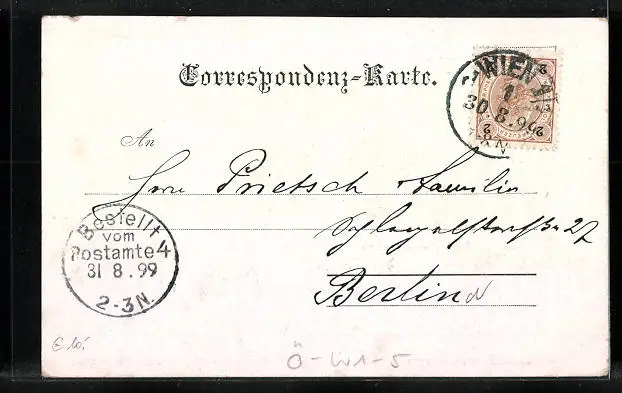 Correspondenz-Karte.
WIEN
1
30.8.99
An
Herrn Prietsch & Familie
Schlegelstraße 27
Berlin N
Bestellt
vom
Postamte 4
31 8.99
2-3N.
Ö-W1-5